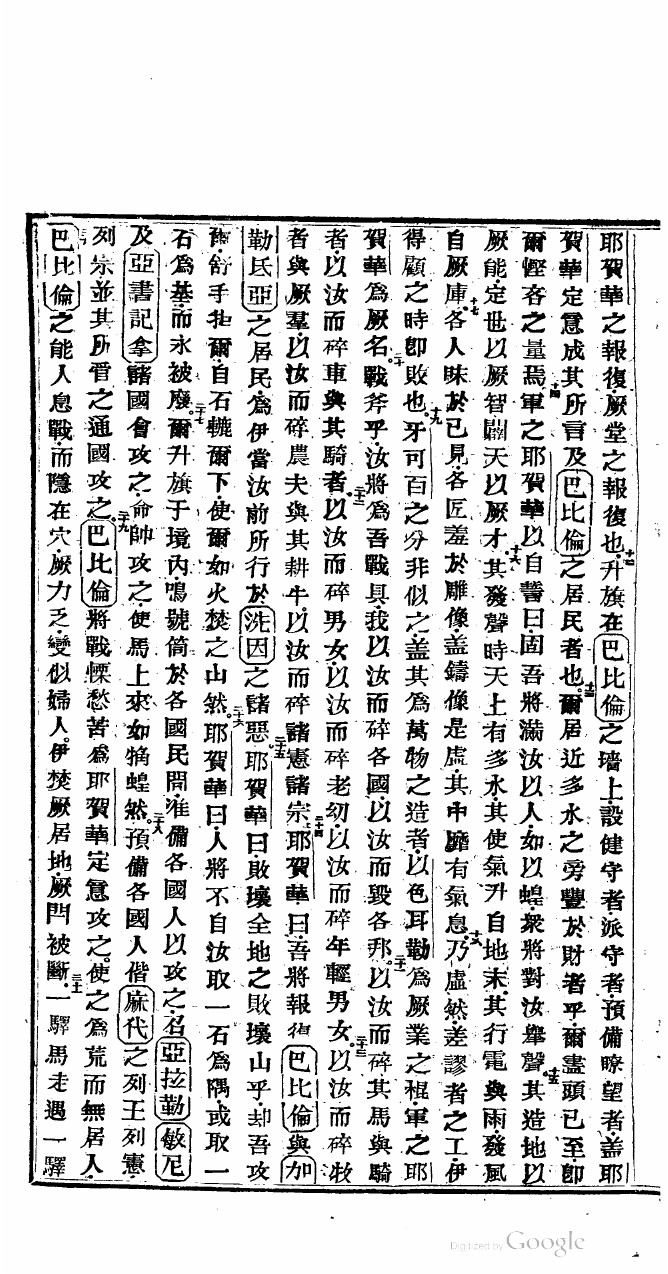 耶賀華之報復厥堂之報復也十二升旗在巴比倫之墻上設健守者派守者預備瞭望者蓋耶
賀華定意成其所言及巴比倫之居民者也十三爾居近多水之旁豐於財者乎爾盡頭已至卽
爾慳吝之量焉十四軍之耶賀華以自誓曰固吾將滿汝以人如以蝗衆將對汝舉聲十五其造地以
厥能定世以厥智闢天以厥才十六其發聲時天上有多水其使氣升自地末其行電與雨發風
自厥庫十七各人昧於已見各匠羞於雕像蓋鑄像是虛其中靡有氣息十八乃虛然差謬者之工伊
得顧之時卽敗也十九牙可百之分非似之蓋其爲萬物之造者以色耳勒爲厥業之棍軍之耶
賀華爲厥名二十戰斧乎汝將爲吾戰具我以汝而碎各國以汝而毀各邦二十一以汝而碎其馬與騎
者以汝而碎車與其騎者二十二以汝而碎男女以汝而碎老幼以汝而碎年輕男女二十三以汝而碎牧
者與厥羣以汝而碎農夫與其耕牛以汝而碎諸憲諸宗二十四耶賀華曰吾將報復巴比倫與加
勒氐亞之居民爲伊當汝前所行於洗因之諸惡二十五耶賀華曰敗壞全地之敗壞山乎却吾攻
爾舒手牡爾自石轆爾下使爾如火焚之山然二十六耶賀華曰人將不自汝取一石爲隅或取一
石爲基而永被廢二十七爾升旗于境內鳴號筒於各國民間准備各國人以攻之名亞拉勒敏尼
及亞書記拿諸國會攻之命帥攻之使馬上來如犓蝗然二十八預備各國人偕麻代之列王列憲
列宗並其所管之通國攻之二十九巴比倫將戰慄愁苦爲耶賀華定意攻之使之爲荒而無居人
巴比倫之能人息戰而隱在穴厥力乏變似婦人伊焚厥居地厥閂被斷三十一驛馬走遇一驛
Digitized by Google